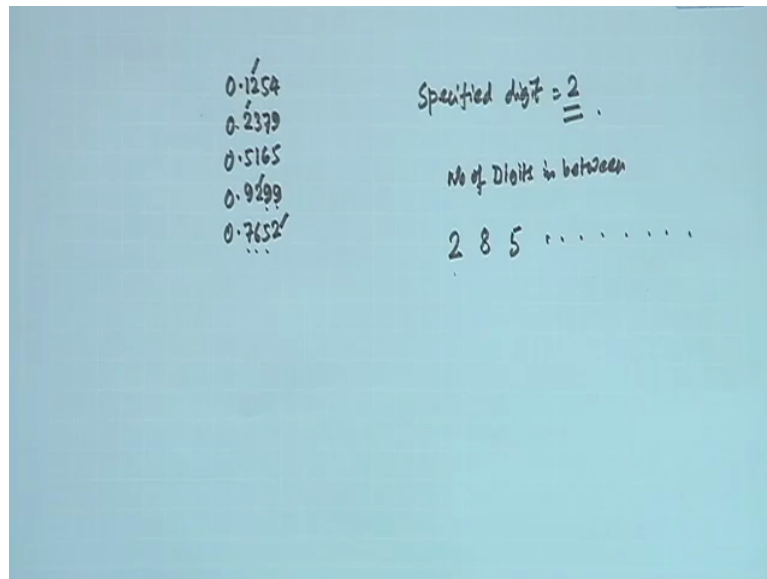 0.1254
0.2379
0.5165
0.9299
0.7652
Specified digit = 2.
No of Digits in between
2 8 5 ........